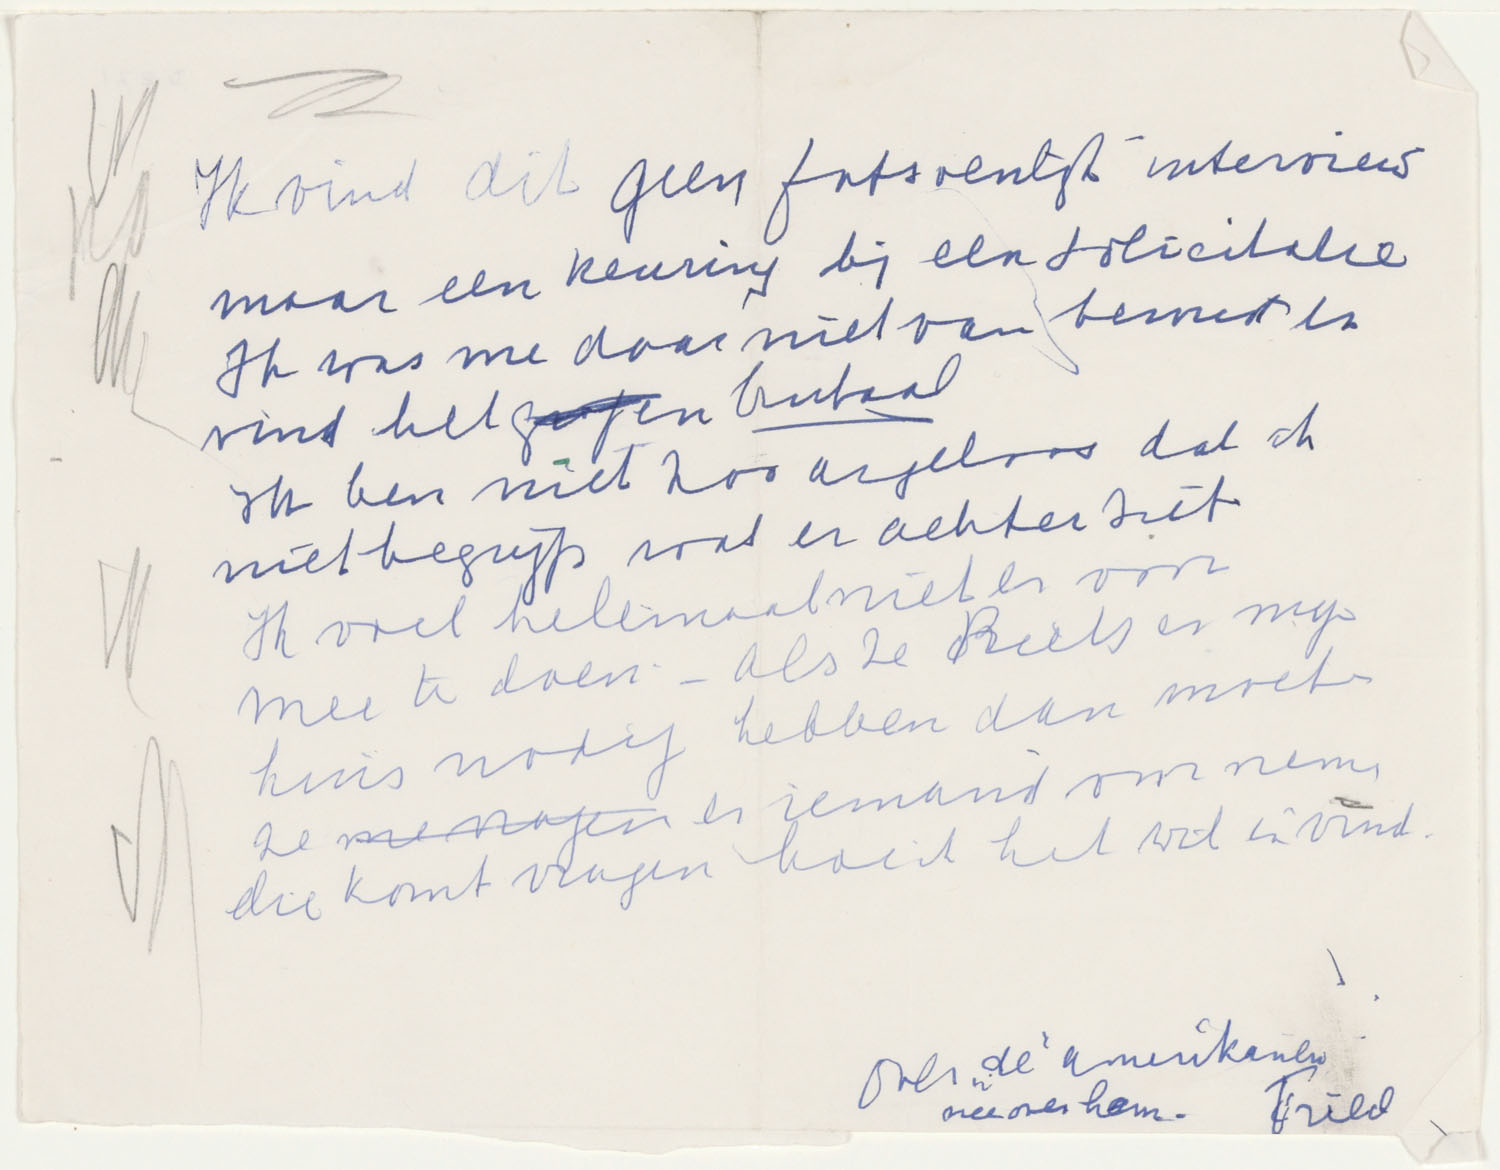 Ik vind dit geen fatsoenlijk interview
maar een keuring bij een solicitatie
Ik was me daar niet van bewust en
vind het brutaal
Ik ben niet zoo argeloos dat ik
niet begrijp wat er achter zit
Ik voel helemaal niet er voor
mee te doen - als ze Riets en mijn
huis nodig hebben dan moeten
ze er iemand voor nemen
die komt vragen hoe ik het wil en vind.
over "de" amerikanen
nee over hem. Fried